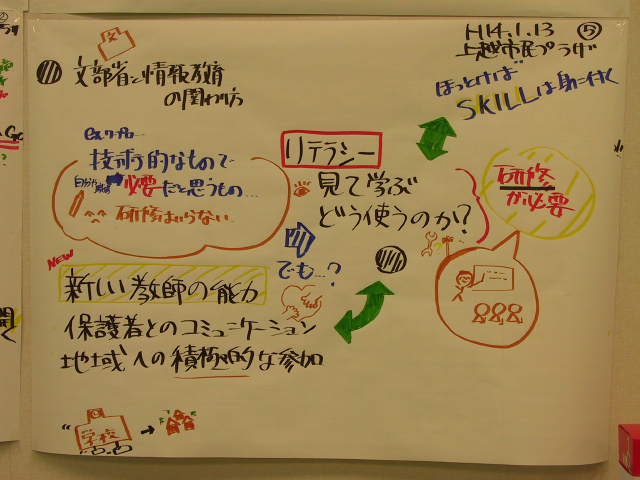 H14.1.13 ⑤
上越市民プラザ
文
文部省と情報教育
の関わり方
ほっとけば
SKILLは身に付く
技術的なもので
必要だと思うもの…
研修はいらない
リテラシー
見て学ぶ
どう使うのか?
研修
が必要
でも…?
NEW
新しい教師の能力
保護者とのコミュニケーション
地域への積極的な参加
学校